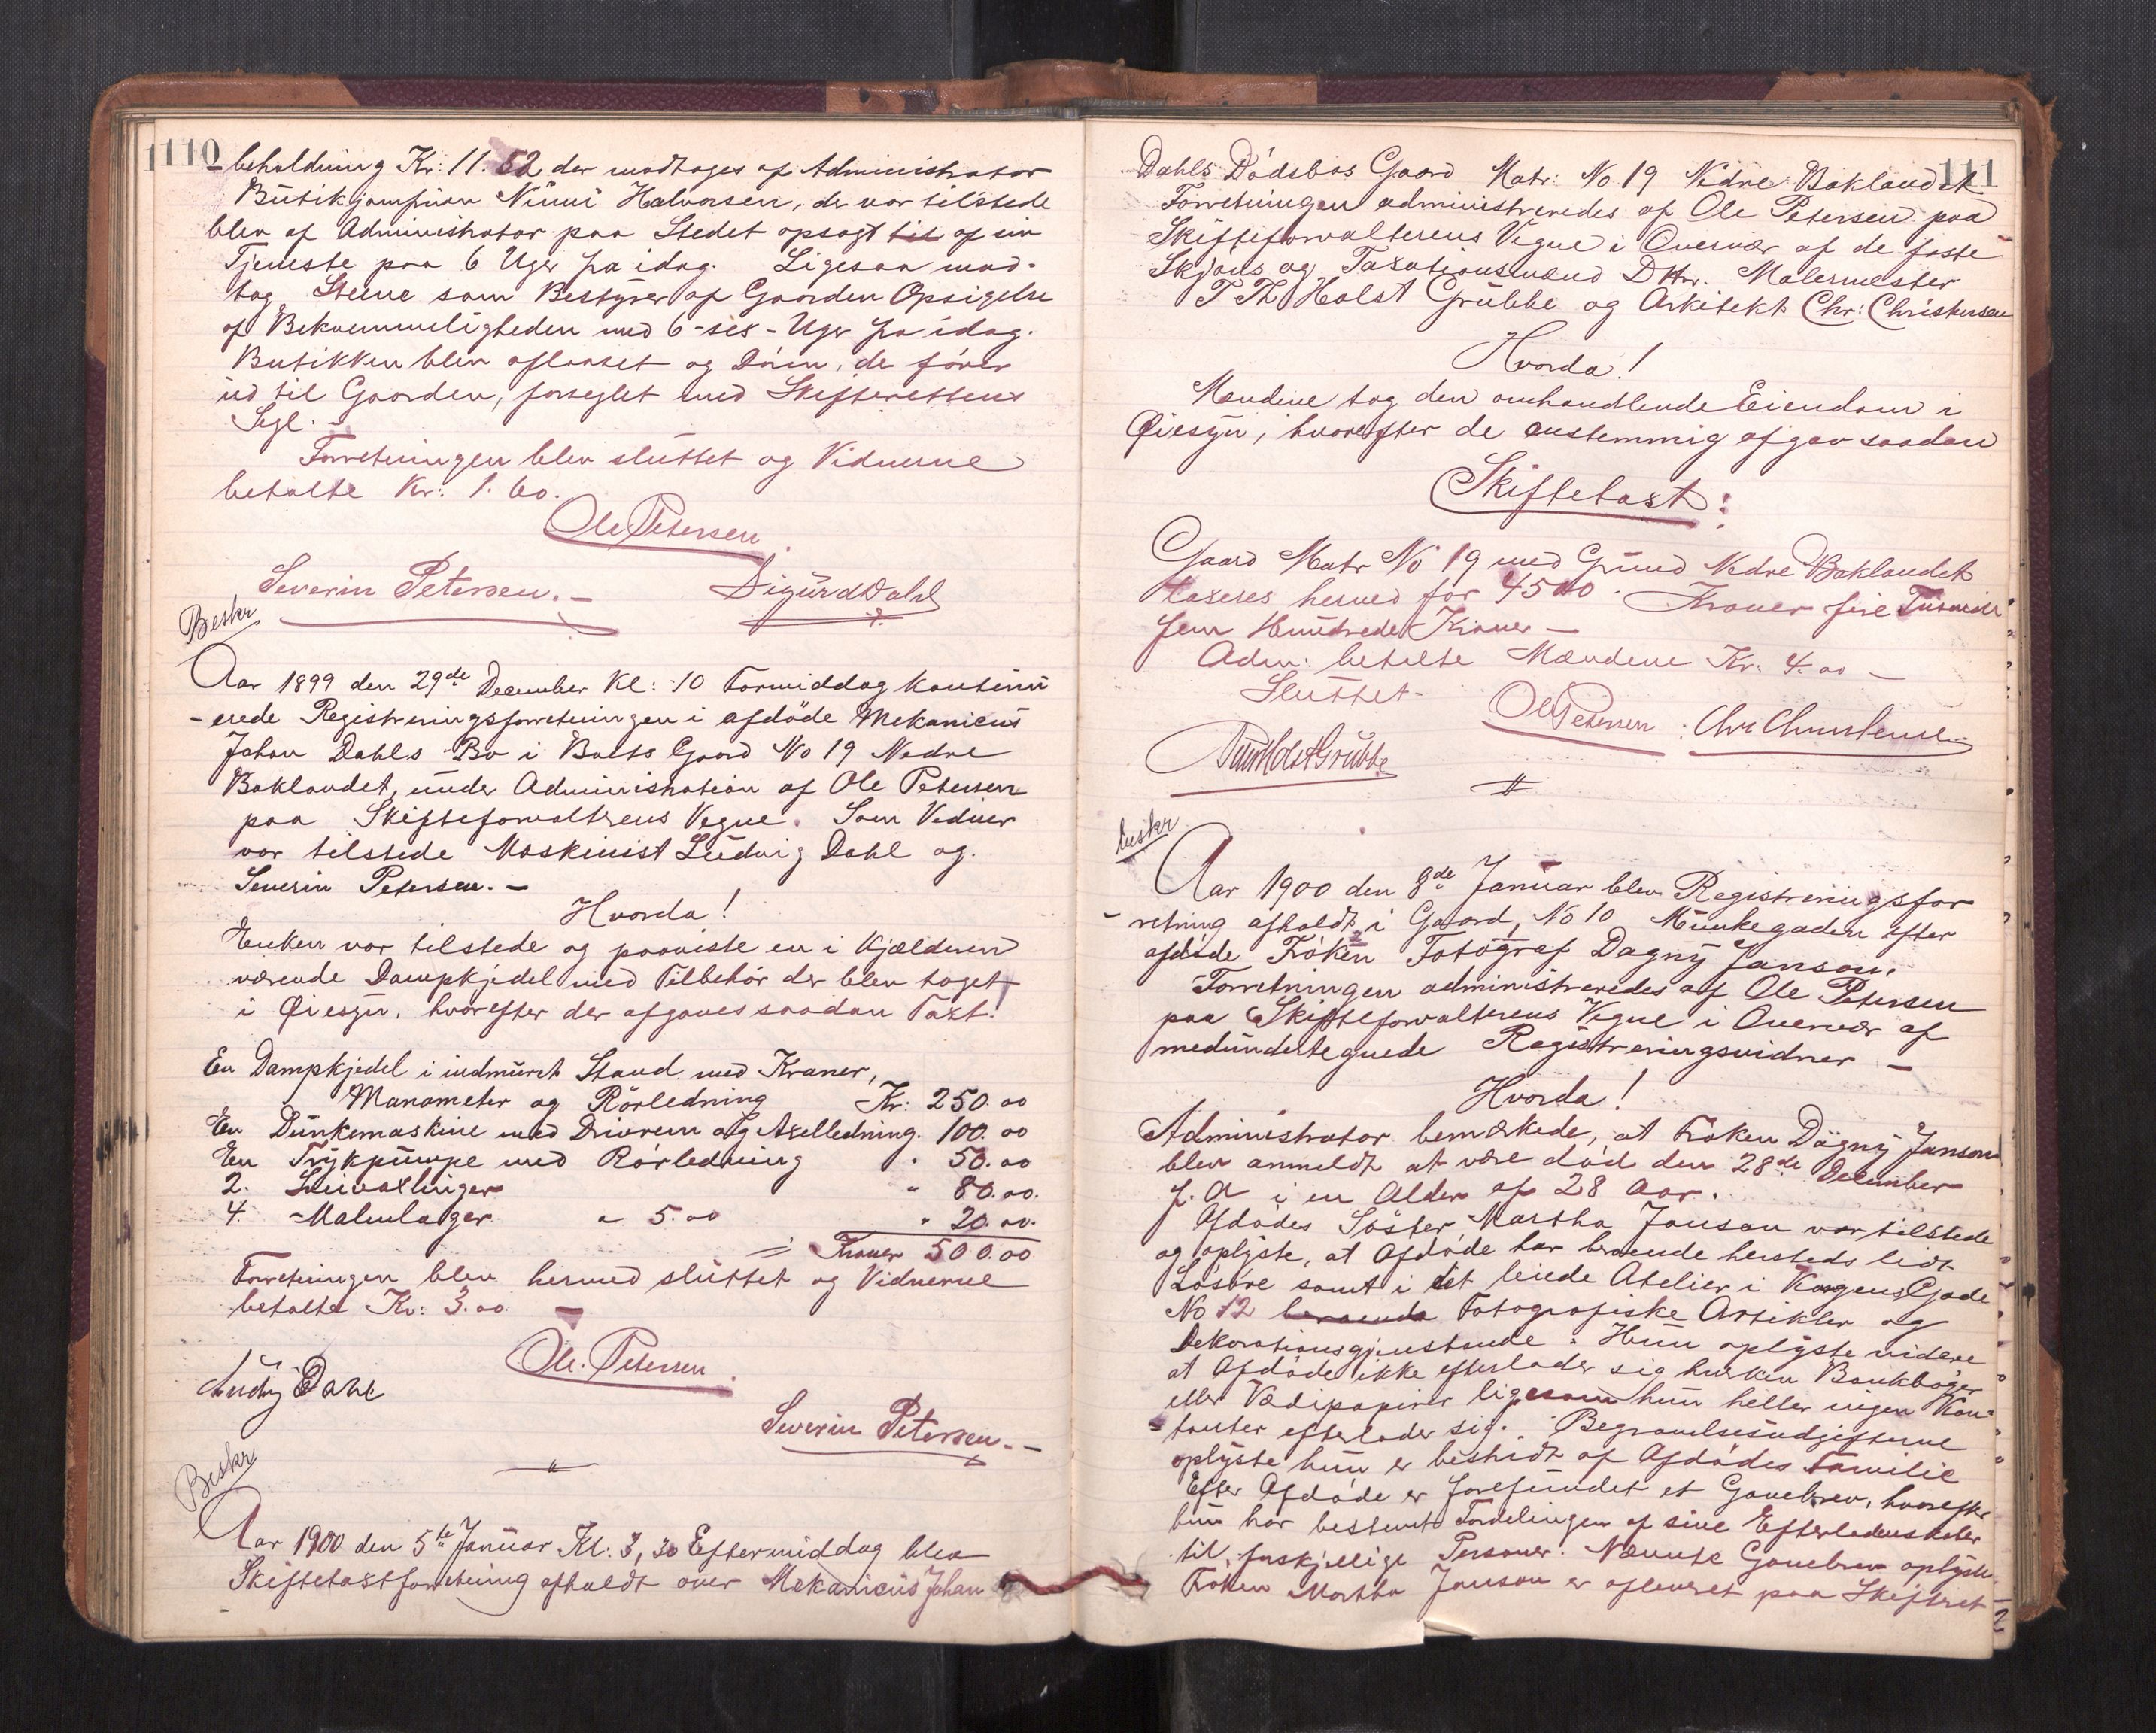 110
-beholdning Kr: 11.52 der modtoges af Administrator
Butikjomfruen Ninni Halvorsen, der var tilstede
blev af Administrator paa Stedet opsagt til af sin
Tjeneste paa 6 Uger fra idag. Ligesaa mod-
tog Steene som Bestyrer af Gaarden Opsigelse
af Bekvemmeligheden med 6-sex-Uger fra idag.
Butikken blev aflaaset og Døren, der fører
ud til Gaarden, forseglet med Skifterettens
Segl. -
Forretningen blev sluttet og Vidnerne
betalte Kr: 1.60.
Ole Petersen
Severin Petersen. - Sigurd Dahl
Beskr
Aar 1899 den 29de December Kl: 10 Formiddag kontinu
-erede Registreringsforretningen i afdøde Mekanicus
Johan Dahls Bo i Boets Gaard No 19 Nedre
Baklandet, under Administration af Ole Petersen
paa Skifteforvalterens Vegne. Som Vidner
var tilstede Maskinist Ludvig Dahl og
Severin Petersen. -
Hvorda!
Enken var tilstede og paaviste en i Kjælderen
værende Dampkjedel med Tilbehør der blev taget
i Øiesyn, hvorefter der afgaves saadan Taxt!
En Dampkjedel i indmuret Stand med Kraner,
Manometer og Rørledning Kr: 250.00
En Dunkemaskine med Drivrem og Axelledning. 100.00
En Trykpumpe med Rørledning " 50.00
2. " 80.00.
4. a 5.00 " 20.00.
= Kroner 500.00
Forretningen blev hermed sluttet og Vidnerne
betalte Kr: 3.00. -
Ole. Petersen
Ludvig Dahl
Severin Petersen. -
Beskr
Aar 1900 den 5te Januar Kl: 3,30 Eftermiddag blev
Skiftetaxtforretning afholdt over Mekanicus Johan
111
Dahls Dødsbos Gaard Matr: No 19 Nedre Baklandet
Forretningen administreredes af Ole Petersen paa
Skifteforvalterens Vegne i Overvær af de faste
Skjøns og Taxationsmænd DHrr. Malermester
T Th Holst Grubbe og Arkitekt Chr: Christensen
Hvorda!
Mændene tog den omhandlende Eiendom i
Øiesyn, hvorefter de enstemmig afgav saadan
Skiftetaxt:
Gaard Matr No 19 med Grund Nedre Baklandet
taxeres herved for 4500. Kroner fire Tusinde
fem Hundrede Kroner -
Adm: betalte Mændene Kr. 4.00 -
Sluttet-
Ole Petersen. Chr Christensen
Holst Grubbe
beskr
Aar 1900 den 8de Januar blev Registreringsfor
-retning afholdt i Gaard, No 10 Munkegaden efter
afdøde Frøken Fotograf Dagny Janson.
Forretningen administreredes af Ole Petersen
paa Skifteforvalterens Vegne i Overvær af
medundertegnede Registreringsvidner -
Hvorda!
Administrator bemærkede, at Frøken Dagny Janson
blev anmeldt at være død den 28de December
f. A i en Alder af 28 Aar.
Afdødes Søster Martha Janson var tilstede
og oplyste, at Afdøde har beroende hersteds lidt
Løsøre samt i det leiede Atelier i Kongens Gade
No 12 beroende Fotografiske Artikler og
Dekorationsgjenstande. Hun oplyste videre
at Afdøde ikke efterlader sig hverken Bankbøger
eller Værdipapirer ligesom hun heller ingen Kon-
-tanter efterlader sig. Begravelsesudgifterne
oplyste hun er bestridt af Afdødes Familie
Efter Afdøde er forefundet et Gavebrev, hvorefter
hun har bestemt Fordelingen af sine Efterladenskaber
til forskjellige Personer. Nævnte Gavebrev oplyste
Frøken Martha Janson er afleveret paa Skifteret